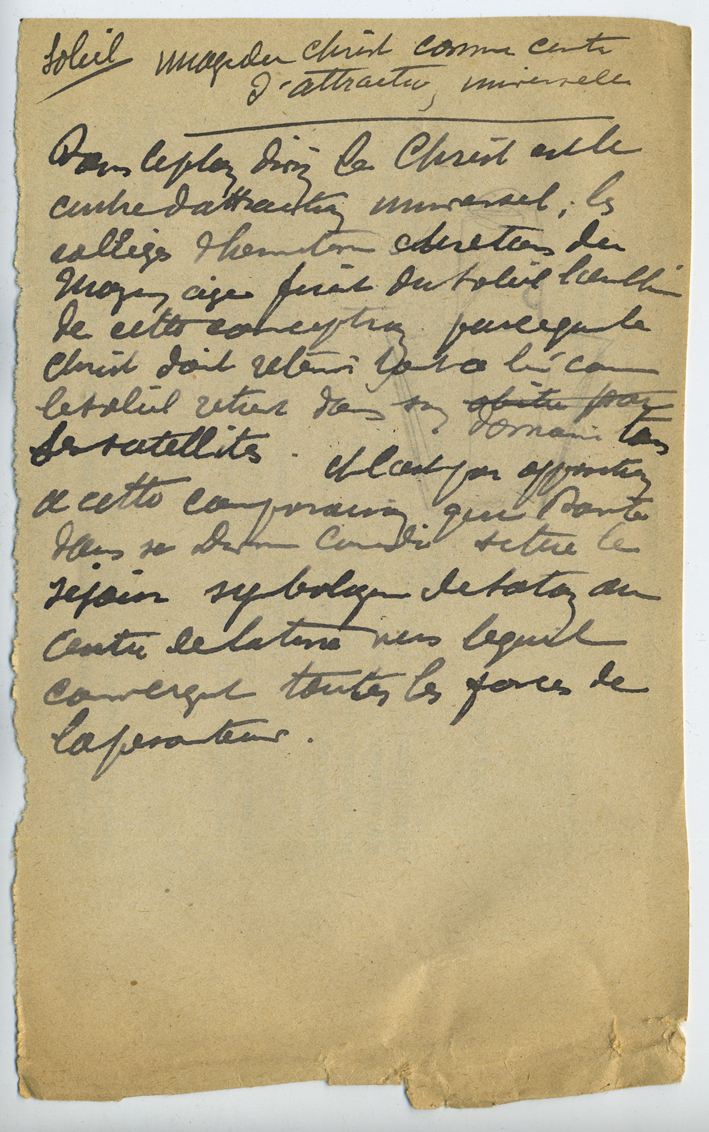 Soleil image du Christ comme centre
d'attraction universelle
Dans le plan divin le Christ est le
centre d'attraction universel ; les
collèges d'hermétisme chrétiens du
Moyen age firent du soleil l'emblème
de cette conception parce que le
Christ doit retenir tout à lui comme
le soleil retient dans son domaine tous
ses satellites. et c'est par opposition
à cette comparaison que Dante
dans sa Divine Comédie situe le
séjour symbolique de Satan au
centre de la terre vers lequel
convergent toutes les forces de
la pesanteur.